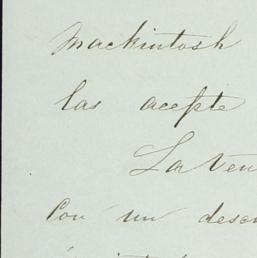 Mackintosh
las acepte
La Ven
Con un desc